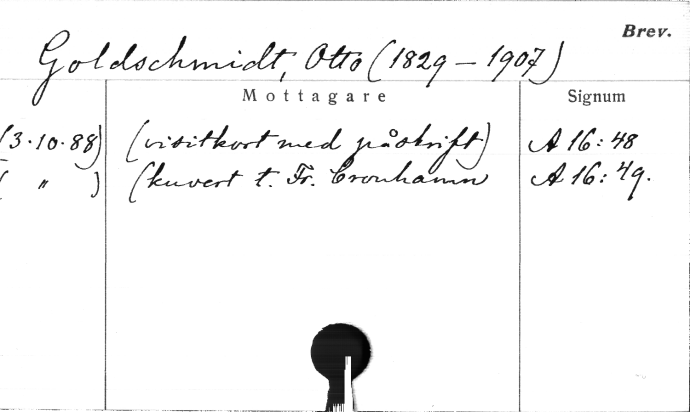 Brev.
Goldschmidt, Otto (1829 – 1907)
Mottagare Signum
(3.10.88) (visitkort med påskrift) A 16:48
( " ) (kuvert t. Fr. Cronhamn A 16:49.